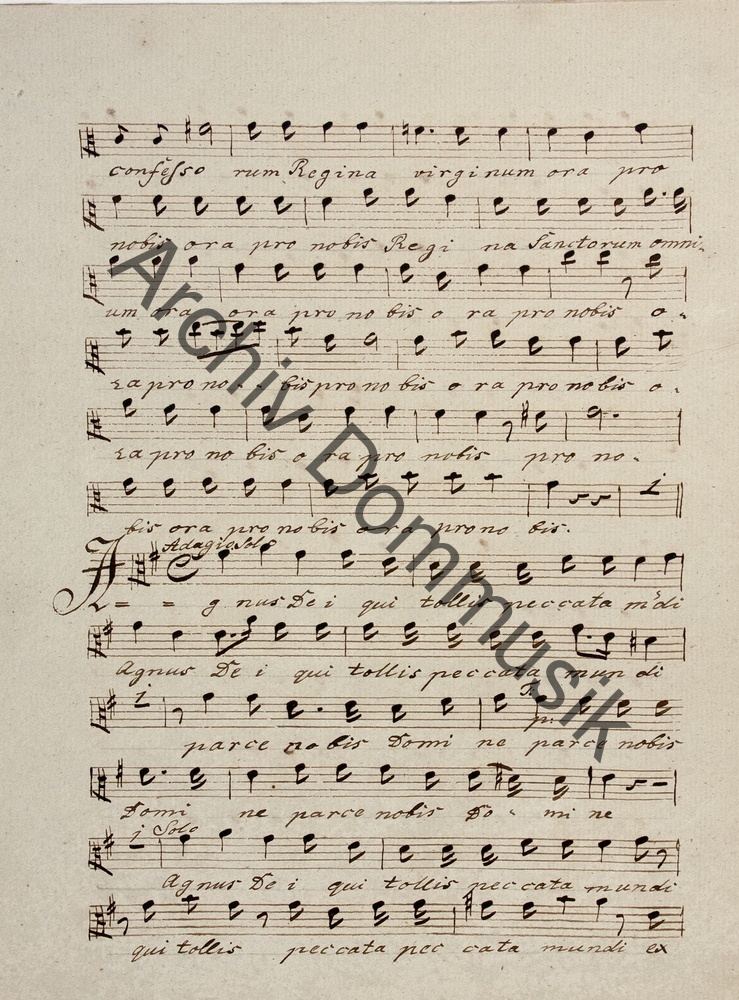 confesso rum Regina virginum ora pro
nobis ora pro nobis Regi na Sanctorum omni-
um ora ora pro no bis o ra pro nobis o-
ra pro no - bis pro no bis o ra pro no bis o-
ra pro no bis o ra pro nobis pro no-
bis ora pro no bis ora pro no bis.
Adagio Solo
A = = g nus De i qui tollis peccata mūdi
Agnus De i qui tollis peccata mun di
parce no bis Domi ne parce nobis
Domi ne parce nobis Do - mi ne
Solo
Agnus De i qui tollis peccata mundi
qui tollis peccata pec cata mundi ex
Archiv Dommusik